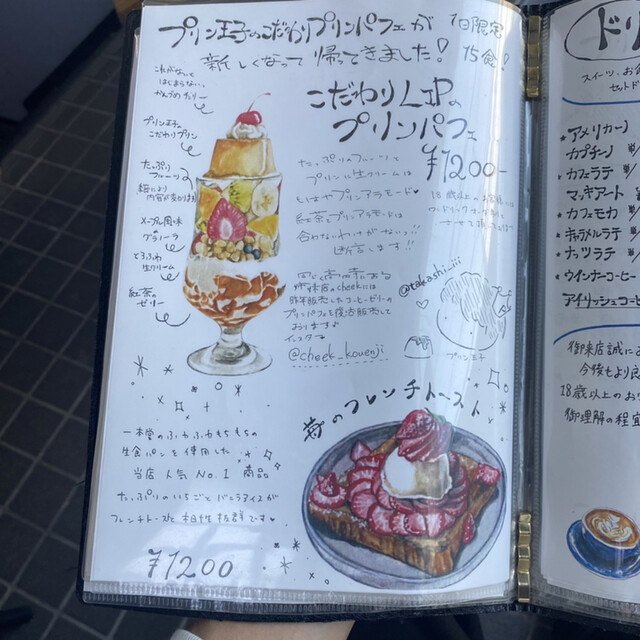 プリン王子のこだわりプリンパフェが
新しくなって帰ってきました！
1日限定
15食！
これがなくって
はじまらない、
かんづめチェリー
プリン王子の
こだわりプリン
たっぷり
フルーツ♪
内容が変わります
メープル風味
グラノーラ
生クリーム
紅茶の
ゼリー
こだわり
プリンパフェ
¥1200-
たっぷりのフルーツと
プリンに生クリームは
もはやプリンアラモード♡
紅茶とプリンアラモードは
合わないわけがない！！
断言します！！
18歳以上のお客様には
@takashi
プリン王子
昨年販売したコーヒーゼリーの
プリンパフェを復活販売して
おります♪
インスタ→
@cheek_kouenji
苺のフレンチトースト
一本堂のふわふわもちもちの
生食パンを使用した
当店人気No.1商品
たっぷりのいちごとバニラアイスが
フレンチトーストと相性抜群です♡
¥1200
ドリ
スイーツ、お食
セットド
★アメリカーノ
カプチーノ ¥
★カフェラテ ¥
マッキアート
★カフェモカ ¥
★キャラメルラテ ¥
★ナッツラテ ¥
★ウインナーコーヒー
アイリッシュコーヒ
御来店誠に
今後もより良
18歳以上のお客
御理解の程宜